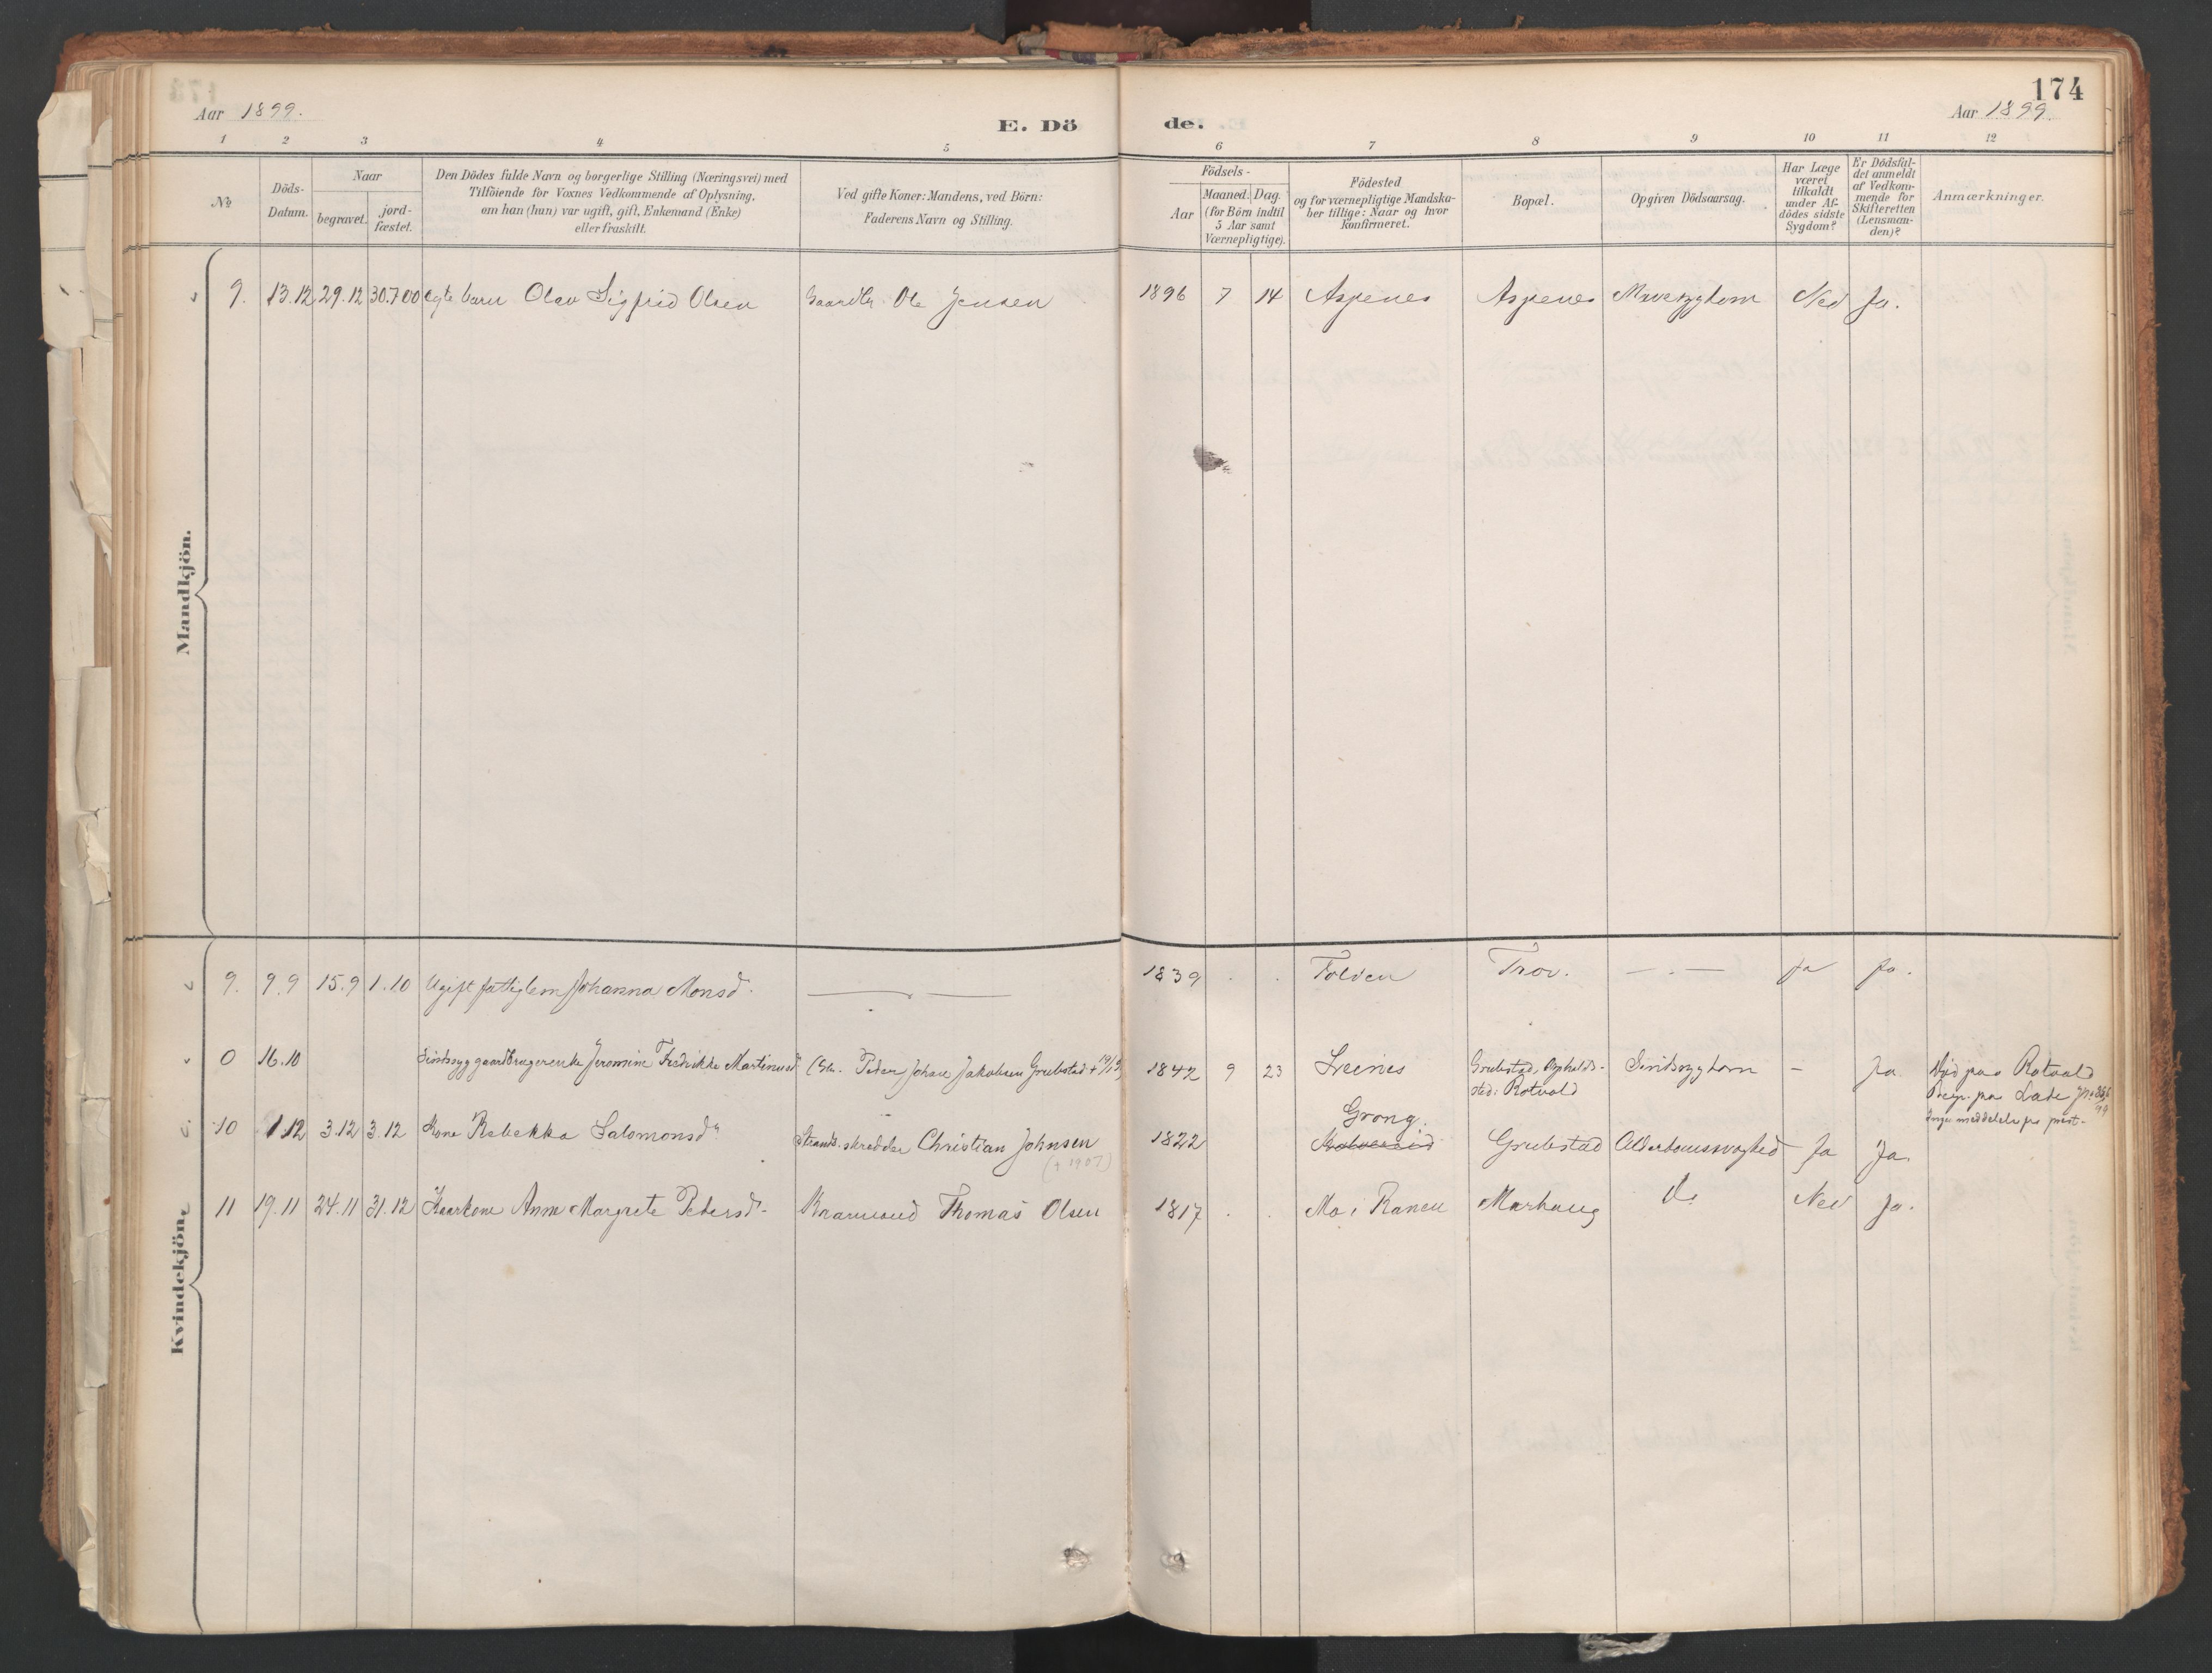 174
Aar 1899.
E. Dö
de.
Aar 1899.
1 2 3 4 5 6 7 8 9 10 11 12
№
Döds-
Datum.
Naar
begravet.
jord-
fæstet.
Den Dödes fulde Navn og borgerlige Stilling (Næringsvei) med
Tilföiende for Voxnes Vedkommende af Oplysning,
om han (hun) var ugift, gift, Enkemand (Enke)
eller fraskilt.
Ved gifte Koner: Mandens, ved Börn:
Faderens Navn og Stilling.
Födsels-
Aar
Maaned. Dag.
(for Börn indtil
5 Aar samt
Værnepligtige).
Födested
og for værnepligtige Mandska-
ber tillige: Naar og hvor
konfirmeret.
Bopæl.
Opgiven Dödsaarsag.
Har Læge
været
tilkaldt
under Af-
dödes sidste
Sygdom?
Er Dödsfal-
det anmeldt
af Vedkom-
mende for
Skifteretten
(Lensman-
den)?
Anmærkninger.
Mandkjön.
9. 13.12 29.12 30.7 00 Egte barn Olav Sigfrid Olsen Gaardbr. Ole Jensen 1896 7 14 Aspenes Aspenes Mavesygdom Nei Ja.
Kvindekjön.
9. 9.9 15.9 1.10 Ugift fattiglem Johanna Monsd. — . — 1839 . . Folden Trov. — . — Ja Ja.
0 16.10 Sindssyg gaardbrugerenke Jeromine Fredrikke Martinusd. (Gbr. Peder Johan Jakobsen Grubstad + 1842 9 23 Leines Grubstad, Opholds-
sted: Rotvold Sindssygdom - Ja. Död paa Rotvold
Begr. paa Lade
Inge meddelelse fra prest-
10 1.12 3.12 3.12 Kone Rebekka Salomonsd. Strands. skredder Christian Johnsen (+ 1907) 1822 Grong. Grubstad Alderdomssvaghed Ja Ja.
11 19.11 24.11 31.12 Kaarkone Anne Margrete Petersd. Kaarmand Thomas Olsen 1817 . . Mo i Ranen Marhaug do Nei Ja.